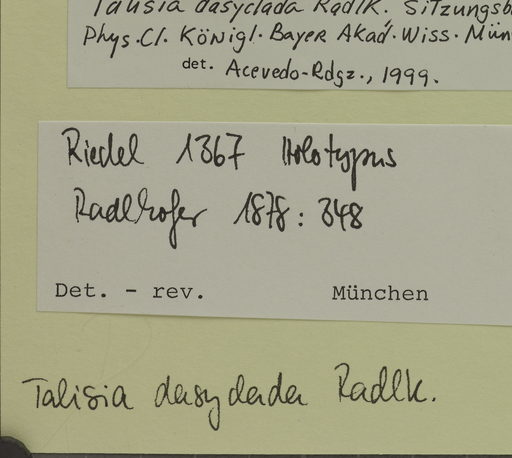 Talisia dasyclada Radlk. Sitzungsb
Phys. Cl. Königl. Bayer Akad. Wiss. Mün
det. Acevedo-Rdgz., 1999.
Riedel 1367 Holotypus
Radlkofer 1878: 348
Det. - rev. München
Talisia dasyclada Radlk.